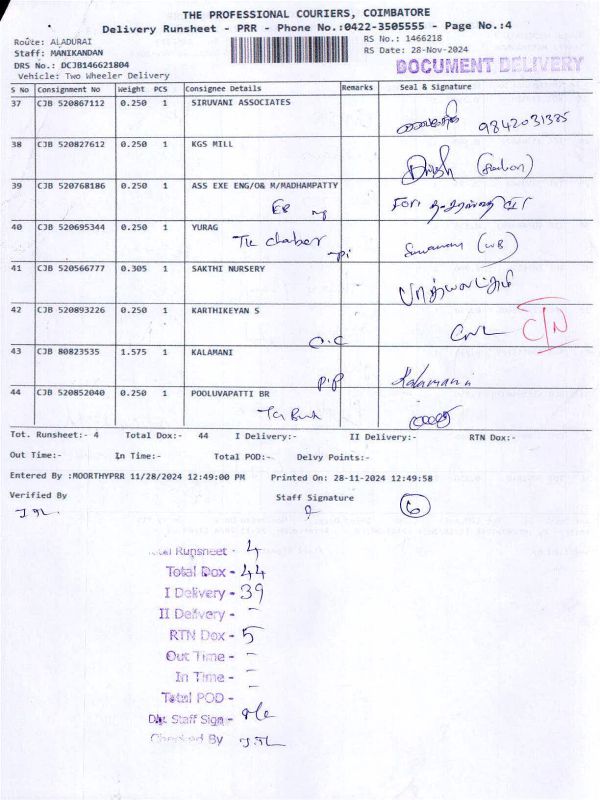 THE PROFESSIONAL COURIERS, COIMBATORE
Delivery Runsheet - PRR - Phone No.:0422-3505555 - Page No.:4
Route: ALADURAI
RS No.: 1466218
Staff: MANIKANDAN
RS Date: 28-Nov-2024
DRS No.: DCJB146621804
DOCUMENT DELIVERY
Vehicle: Two Wheeler Delivery
S No Consignment No Weight PCS Consignee Details Remarks Seal & Signature
37 CJB 520867112 0.250 1 SIRUVANI ASSOCIATES
9842031385
38 CJB 520827612 0.250 1 KGS MILL
39 CJB 520768186 0.250 1 ASS EXE ENG/O& M/MADHAMPATTY
EB
For
40 CJB 520695344 0.250 1 YURAG
(WB)
41 CJB 520566777 0.305 1 SAKTHI NURSERY
42 CJB 520893226 0.250 1 KARTHIKEYAN S
O.C CNL C/N
43 CJB 80823535 1.575 1 KALAMANI
P.P Kalamani
44 CJB 520852040 0.250 1 POOLUVAPATTI BR
Tot. Runsheet:- 4 Total Dox:- 44 I Delivery:- II Delivery:- RTN Dox:-
Out Time:- In Time:- Total POD:- Delvy Points:-
Entered By :MOORTHYPRR 11/28/2024 12:49:00 PM Printed On: 28-11-2024 12:49:58
Verified By Staff Signature
6
Runsheet - 4
Total Dox - 44
I Delivery - 39
II Delivery - -
RTN Dox - 5
Out Time - -
In Time - -
Total POD -
Staff Sign -
Checked By